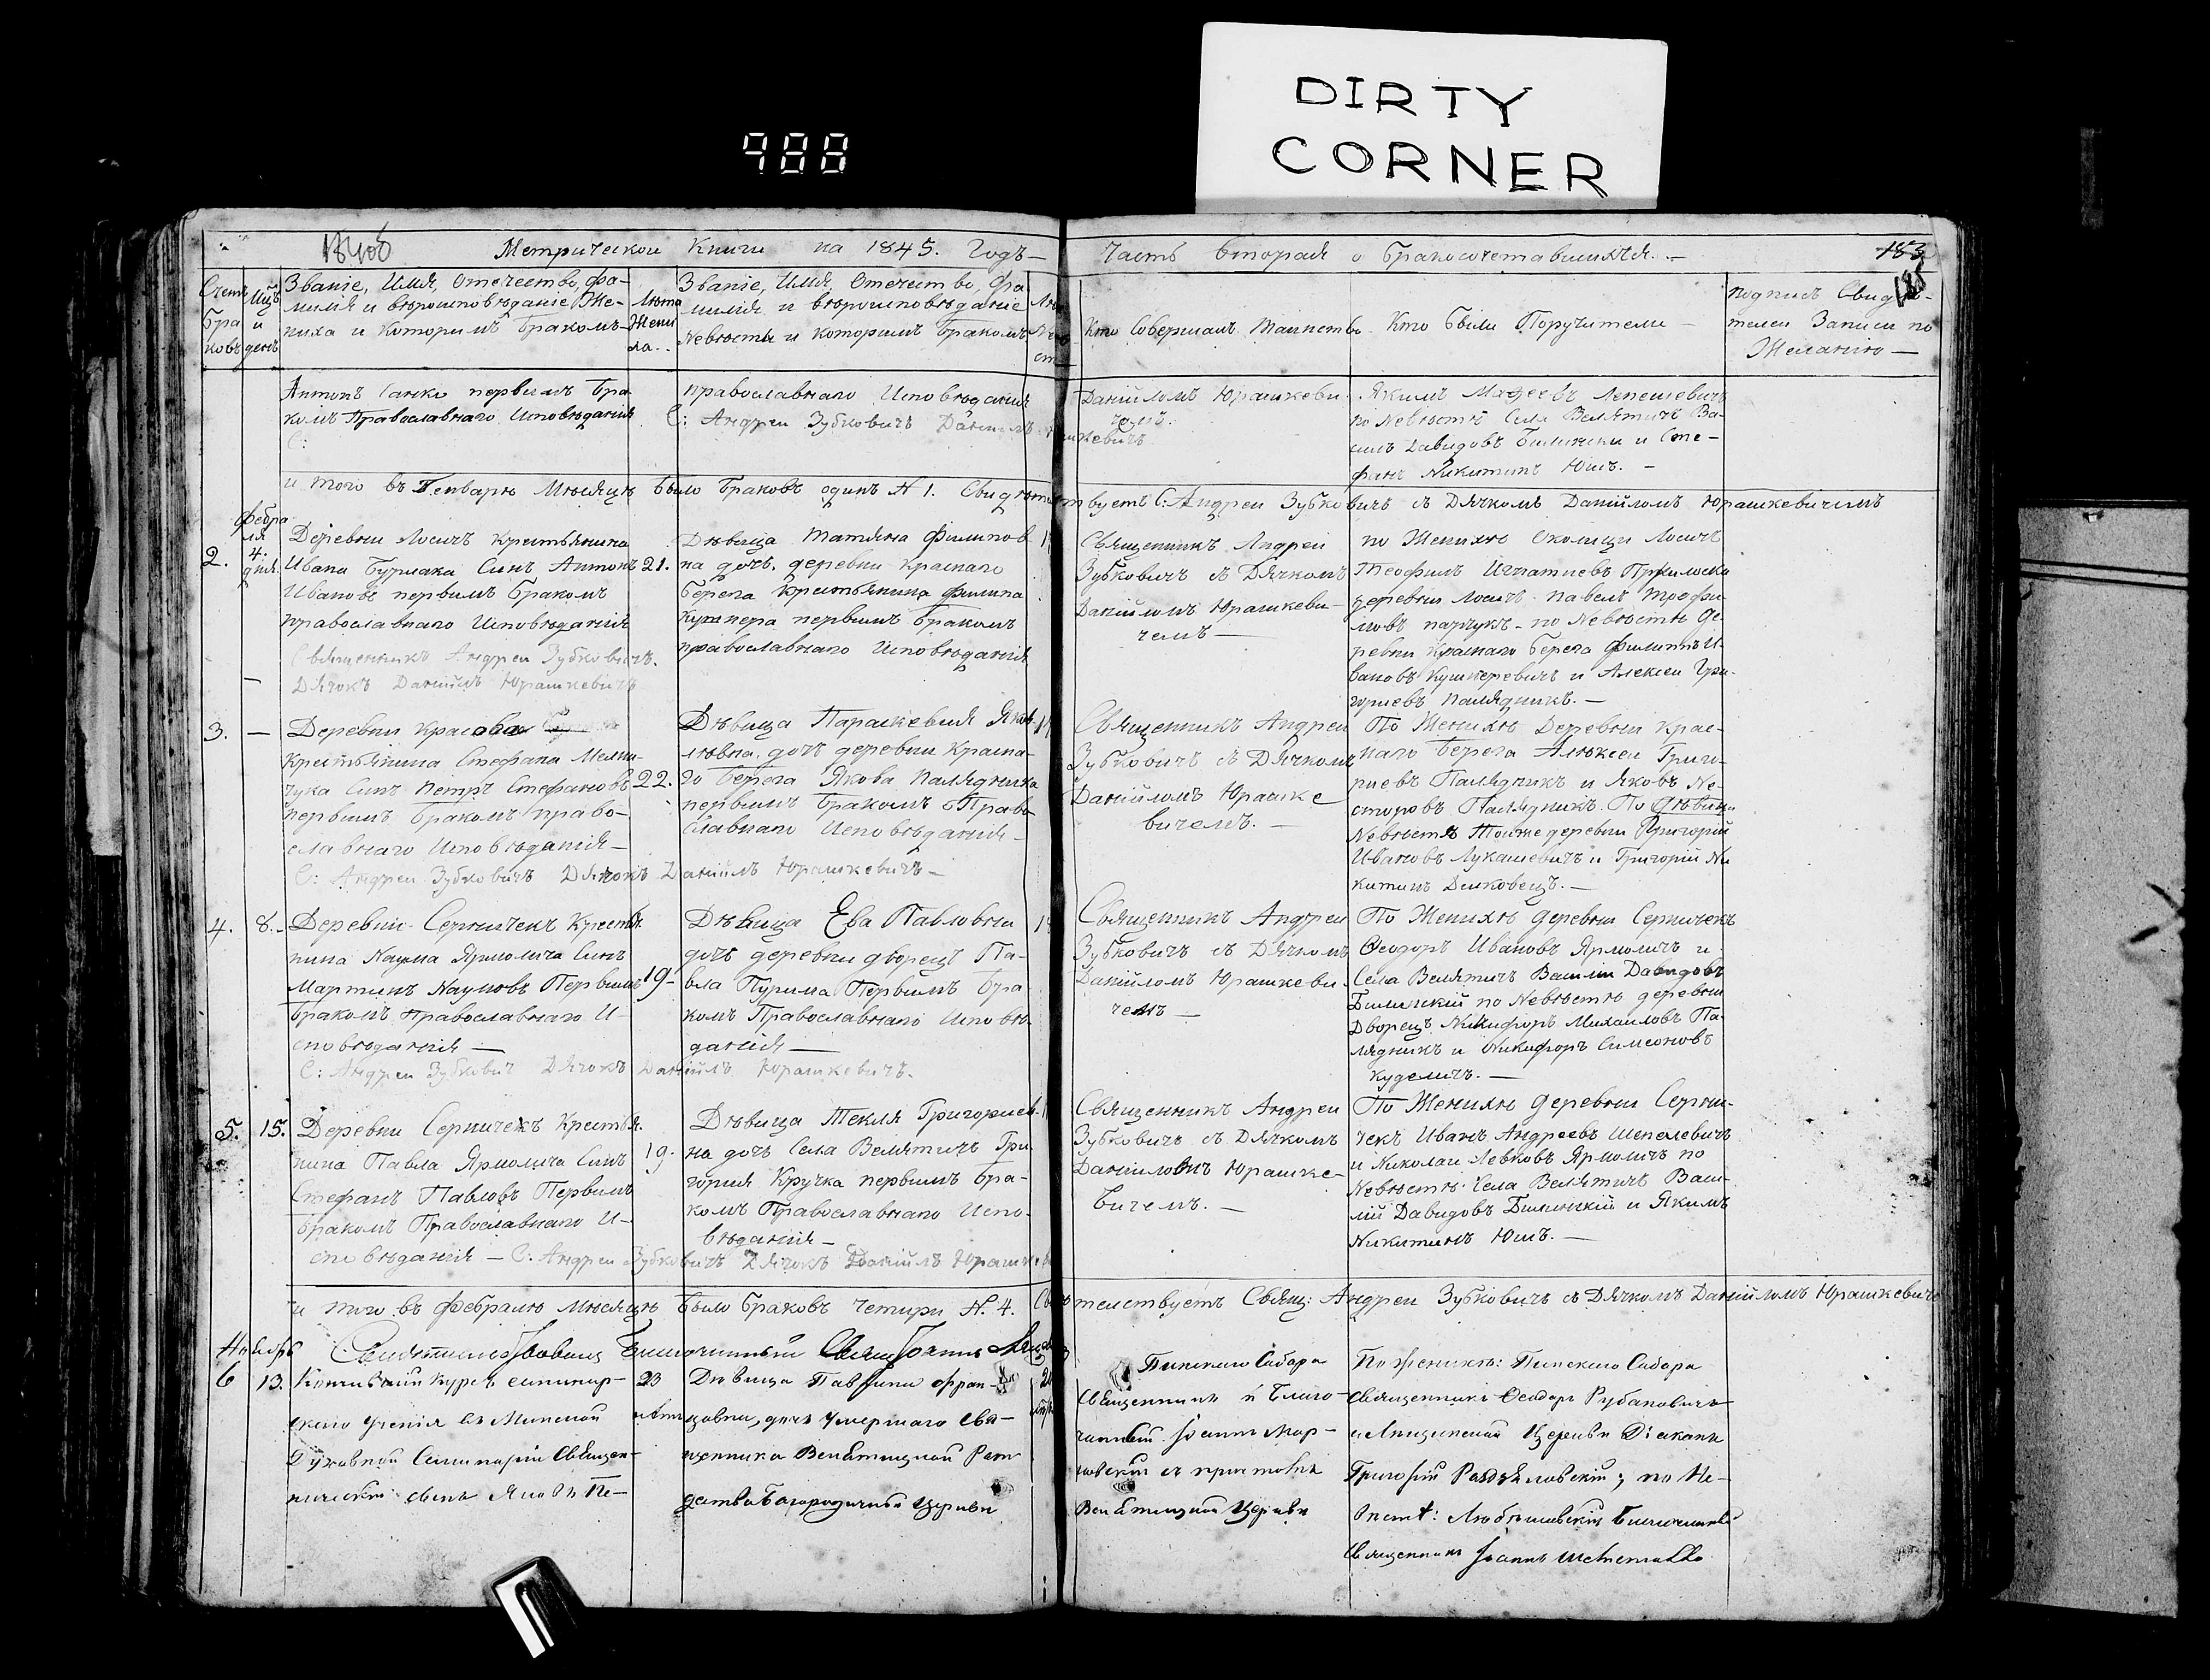 DIRTY
CORNER
988
Метрической Книги на 1845. Годъ—
Часть вторая о бракосочетавшихся.—
183
Счетъ бра ковъ
Мць и день
Званіе, Имя, Отечество, фа-
милія и вѣроисповѣданіе Же-
ниха и которимъ бракомъ—
Лѣта Жени ха.
Званіе, Имя, Отечество, фа
милія и вѣроисповѣданіе
Невѣсты и которимъ бракомъ
Кто Совершалъ Таинство
Кто были Поручители—
подпись Свидѣ-
телей Записи по
Желанію—
Антонъ первимъ бра
комъ Православнаго Исповѣданія
С:
православнаго Исповѣданія
С: Андрей Зубковичъ Даніилъ
Юрашкевичъ
Даніиломъ Юрашкеви
чемъ.
Якимъ Матфеевъ Лепешевичъ
по Невѣстѣ Села Велятичъ Ва-
силъ Давидовъ и Сте-
фанъ Никитинъ Юшъ.—
и того въ Генварѣ Мѣсяцѣ было браковъ одинъ N 1. Свидѣтельствуетъ С: Андрей Зубковичъ съ Дячкомъ Даніиломъ Юрашкевичемъ
2.
февра
ля
4.
дня.
Деревни Лосичъ крестьянина
Ивана Бурлака Синъ Антонъ
Ивановъ первимъ бракомъ
православнаго Исповѣданія
Священникъ Андрей Зубковичъ.
Дячокъ Даніилъ Юрашкевичъ
21.
Дѣвица Татяна Филипов
на дочъ. деревни краснаго
берега крестянина филипа
Кушнера первимъ бракомъ
православнаго Исповѣданія
Священникъ Андрей
Зубковичъ съ Дячкомъ
Даніиломъ Юрашкеви-
чемъ—
по Женихѣ Околици Лосичъ
Теофилъ Игнатиевъ
деревни Лосичъ Павелъ Трофи-
мовъ парчукъ—по Невѣстѣ де-
ревни краснаго берега Филиппъ И-
вановъ Кушнеревичъ и Алексеи Гри-
гориевъ Палядникъ.—
3.
—
Деревни Красова
крестьянина Стефана Мелни-
чука Синъ Петръ Стефановъ
первимъ бракомъ право-
славнаго Исповѣданія—
С: Андрей Зубковичъ Дячокъ Даніилъ Юрашкевичъ—
22.
Дѣвица Параскевія Яков-
левна дочъ деревни красна-
го берега Якова Палядника
первимъ бракомъ Право-
славнаго Исповѣданія—
Священникъ Андрей
Зубковичъ съ Дячкомъ
Даніиломъ Юрашке
вичемъ.—
По Женихѣ Деревни крас-
наго берега Алѣксеи Григо-
риевъ Палядникъ и Яковъ Не-
сторовъ Палядникъ. По дѣвици
Невѣстѣ Тоиже деревни Григорій
Ивановъ Лукашевичъ и Григорій Ни
китинъ Дилковецъ.—
4.
8.
Деревни Серничекъ крестья
нина Наума Ярмолича Синъ
Мартинъ Наумовъ Первимъ
бракомъ православнаго И-
сповѣданія—
С: Андрей Зубкович Дячокъ Даніилъ Юрашкевичъ.
19—
Дѣвица Ева Павловни
дочъ деревни дворецъ Па-
вла Пурина Первимъ бра
комъ Православнаго Исповѣ-
данія—
Священникъ Андрей
Зубковичъ съ Дячкомъ
Даніиломъ Юрашкеви
чемъ—
По Женихѣ деревни Серничекъ
Феодоръ Ивановъ Ярмоличъ и
Села Велятичъ Василіи Давидовъ
по Невѣстѣ деревни
Дворецъ Никифоръ Михаиловъ Па-
лядникъ и Никифоръ Симеоновъ
куделичъ.—
5.
15.
Деревни Серничекъ Крестья.
нина Павла Ярмолича Синъ
Стефанъ Павловъ Первимъ
бракомъ Православнаго И-
сповѣданія—С: Андрей Зубковичъ Дячокъ Даніилъ Юрашкеви
19.
Дѣвица Текля Григориев-
на дочъ Села Велятичъ Гри-
горія Кручка первимъ бра-
комъ Православнаго Испо-
вѣданія—
Священникъ Андрей
Зубковичъ съ Дячкомъ
Даніиломъ Юрашке-
вичемъ.—
По Женихѣ деревни Серни-
чекъ Иванъ Андреевъ Шепелевичъ
и Николаи Левковъ Ярмоличъ по
Невѣстѣ Села Велятичъ Васи-
лій Давидовъ и Якимъ
Никитинъ Юшъ.—
и того въ Февралѣ Мѣсяцѣ было браковъ четири N. 4. Свидѣтелствуетъ Свящ: Андрей Зубковичъ съ Дячкомъ Даніиломъ Юрашкевичемъ
Свидѣтельствовалъ Благочинный
6
13.
Кончившій курсъ семинар-
скаго ученія въ Минской
Духовной Семинаріи Священ-
ническій сынъ Яковъ
23
Дѣвица Павлина Фран-
цовна, дочь умершаго Свя-
щенника Велятицкой Рож
дество Богородичной Церкви
Пинскаго Собора
Священникъ и Благо-
чинный Іоаннъ
съ причтомъ
Велятицкой Церкви
По женихѣ: Пинскаго Собора
Священникъ Феодоръ Рубановичъ
и Церкви Діаконъ
Григорій по Не-
вѣстѣ: Любѣшовскій Благочинный
Священникъ Іоаннъ